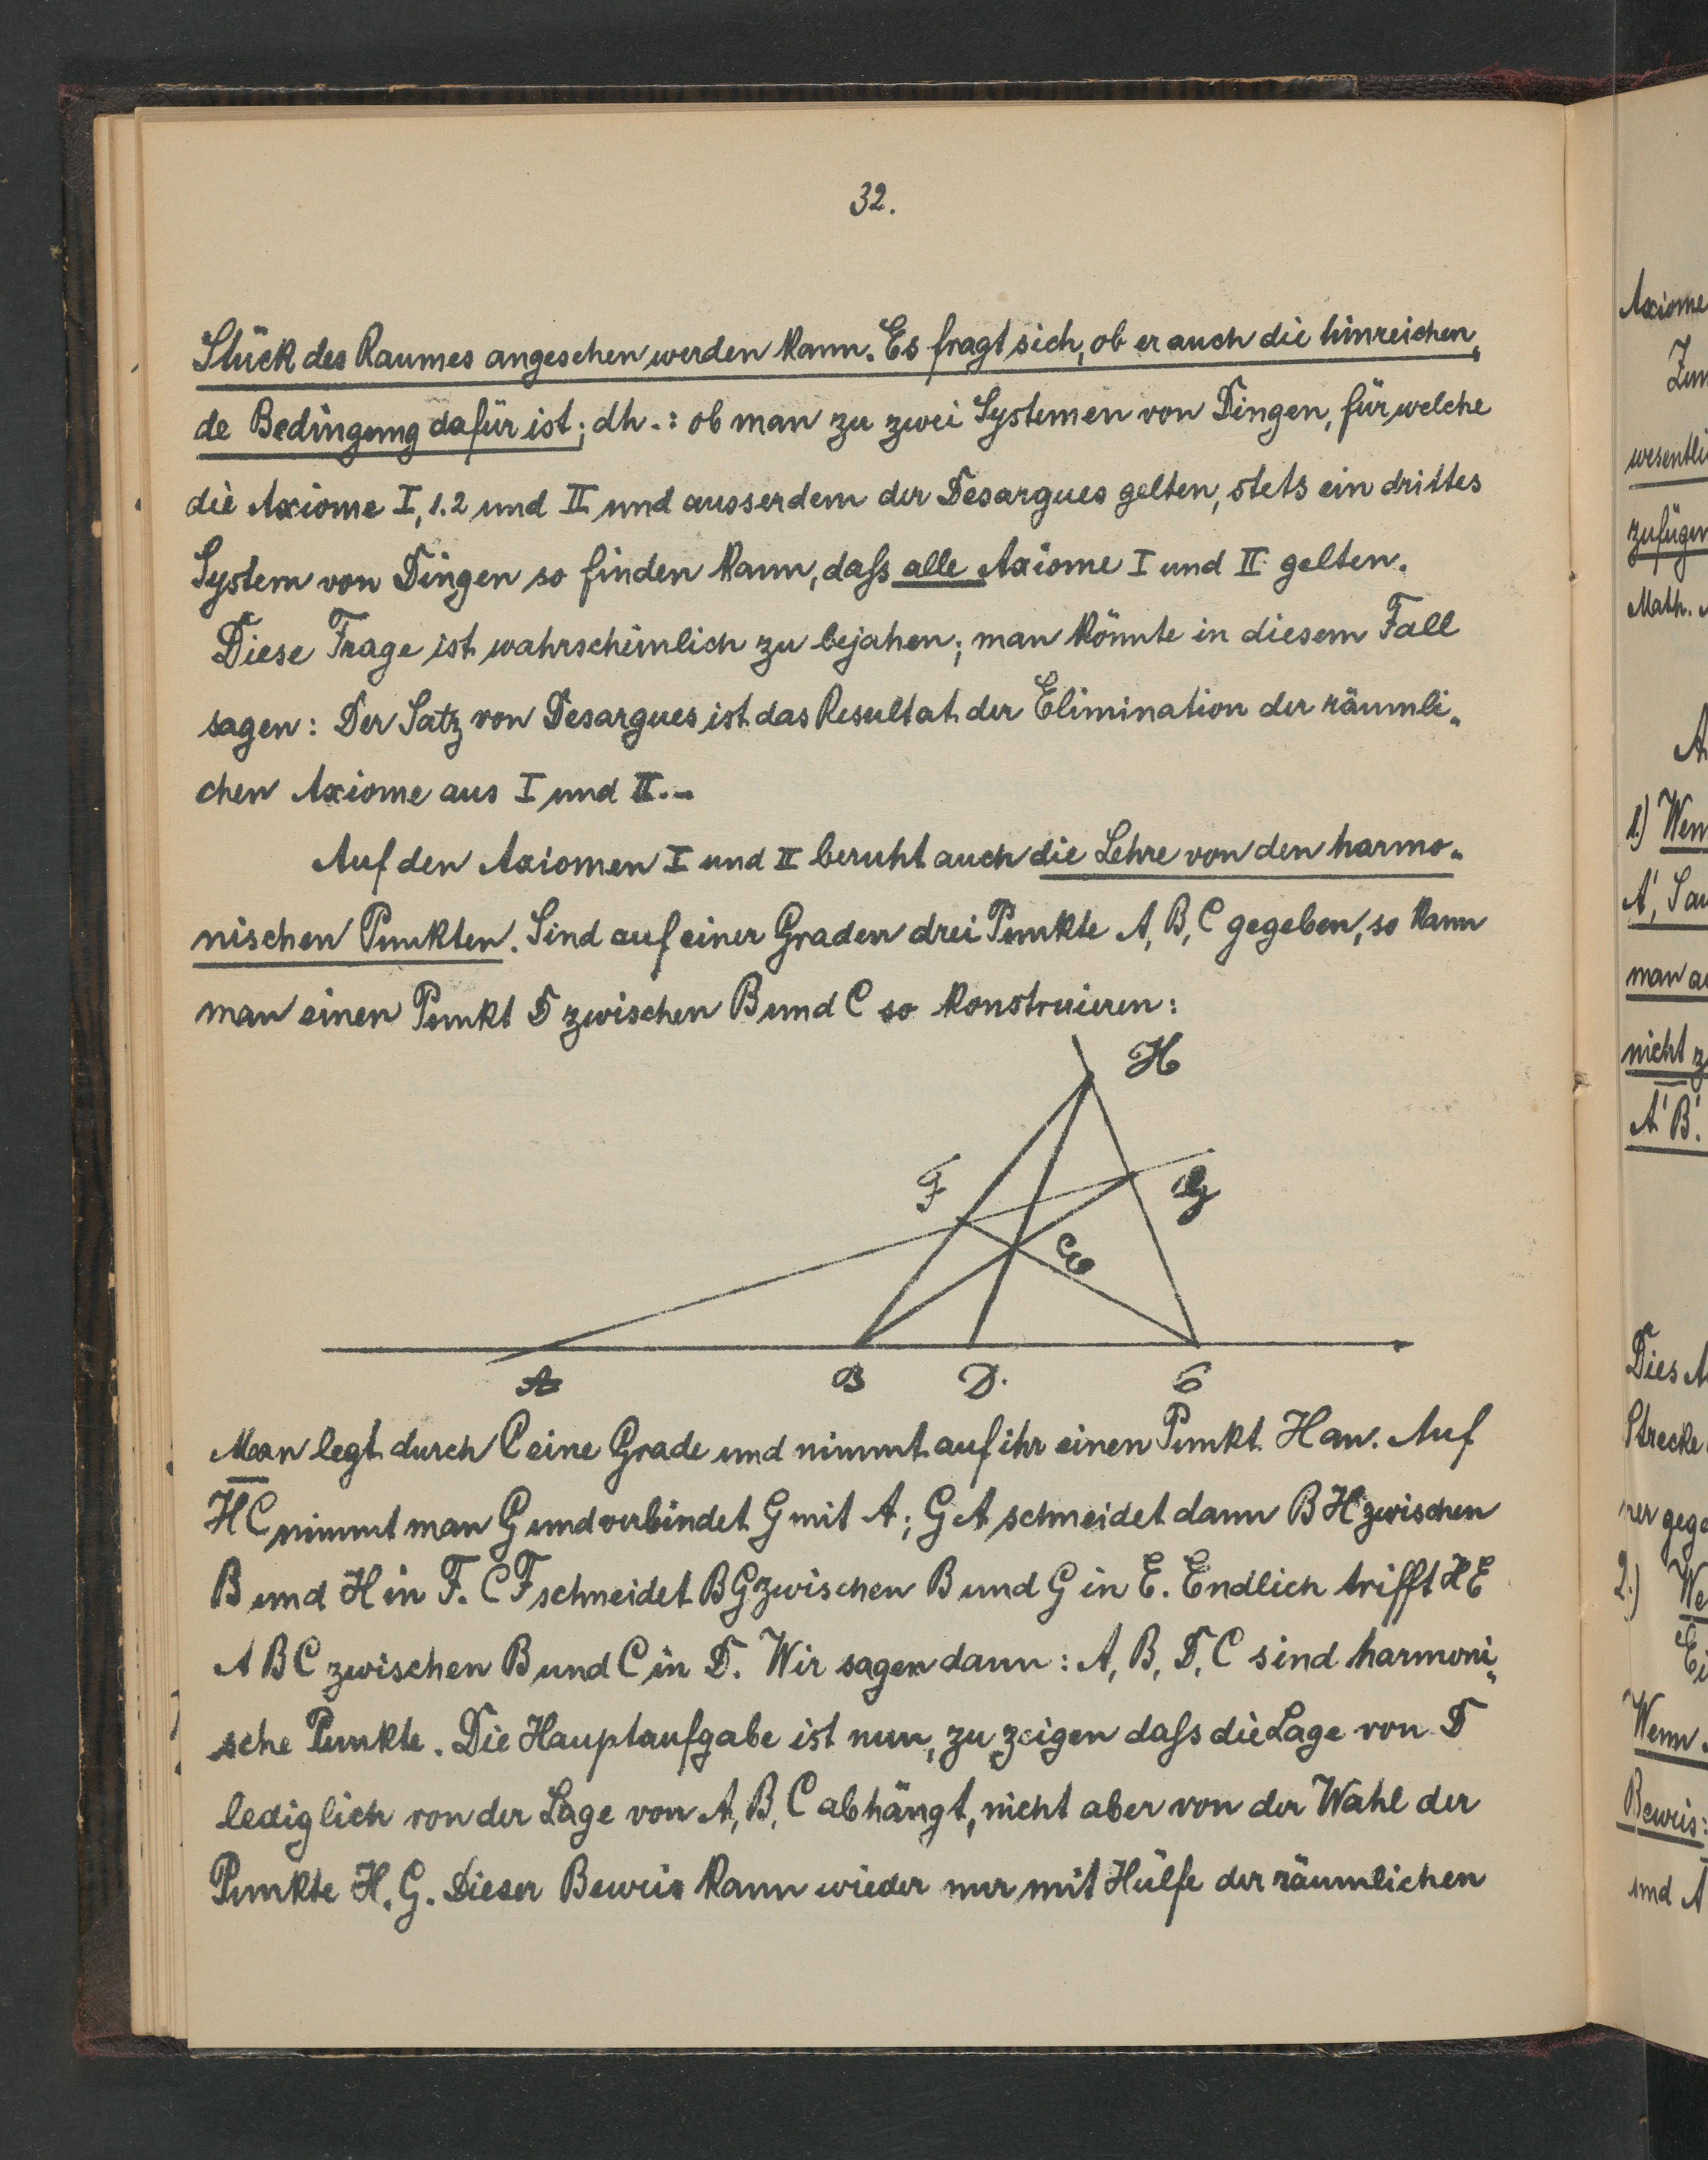 32.
Stück des Raumes angesehen werden kann. Es fragt sich, ob er auch die hinreichen„
de Bedingung dafür ist; dh.: ob man zu zwei Systemen von Dingen, für welche
die Axiome I, 1.2 und II und ausserdem der Desargues gelten, stets ein drittes
System von Dingen so finden kann, daſs alle Axiome I und II gelten.
Diese Frage ist wahrscheinlich zu bejahen; man könnte in diesem Fall
sagen: Der Satz von Desargues ist das Resultat der Elimination der räumli„
chen Axiome aus I und II.–
Auf den Axiomen I und II beruht auch die Lehre von den harmo„
nischen Punkten. Sind auf einer Graden drei Punkte A, B, C gegeben, so kann
man einen Punkt D zwischen B und C so konstruieren:
H
F
G
E
A B D. C
Man legt durch C eine Grade und nimmt auf ihr einen Punkt H an. Auf
HC nimmt man G und verbindet G mit A; GA schneidet dann BH zwischen
B und H in F. CF schneidet BG zwischen B und G in E. Endlich trifft HE
ABC zwischen B und C in D. Wir sagen dann: A, B, D, C sind harmoni„
sche Punkte. Die Hauptaufgabe ist nun, zu zeigen daſs die Lage von D
lediglich von der Lage von A, B, C abhängt, nicht aber von der Wahl der
Punkte H, G. Dieser Beweis kann wieder nur mit Hülfe der räumlichen
Axiome
zufügen
Math.
1.)
A',
man
nicht
A'B'.
Dies
Strecke
2.)
Wenn
Beweis:
und A